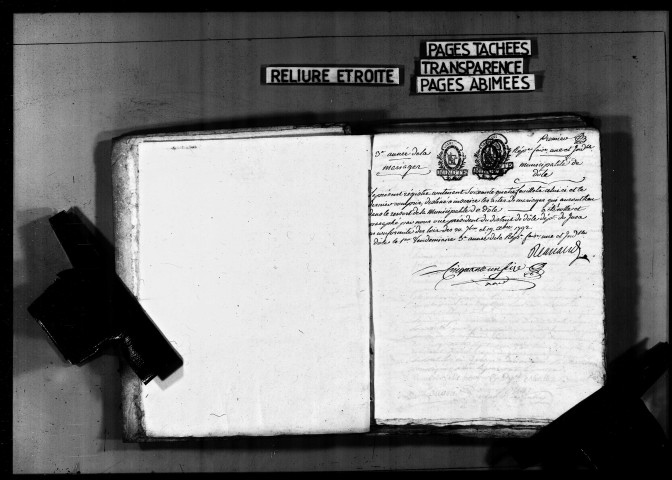 RELIURE ETROITE
PAGES TACHEES
TRANSPARENCE
PAGES ABIMEES
3e année de la
mariages
premier
Répe. franse. une et Indble
municipalité de
dôle
le présent registre contenant soixante quatre feuillets celui ci et le
dernier compris, destiné à inscrire les actes de mariages qui auront lieu
dans le ressort de la Municipalité de dôle a été cotté et
paraphé par nous président du district de dôle dépt. du Jura
en conformité des loix des 20 7bre et 19 Xbre 1792
dôle le 1er Vendemiaire 3e année de la Répe. franse. une et Indble